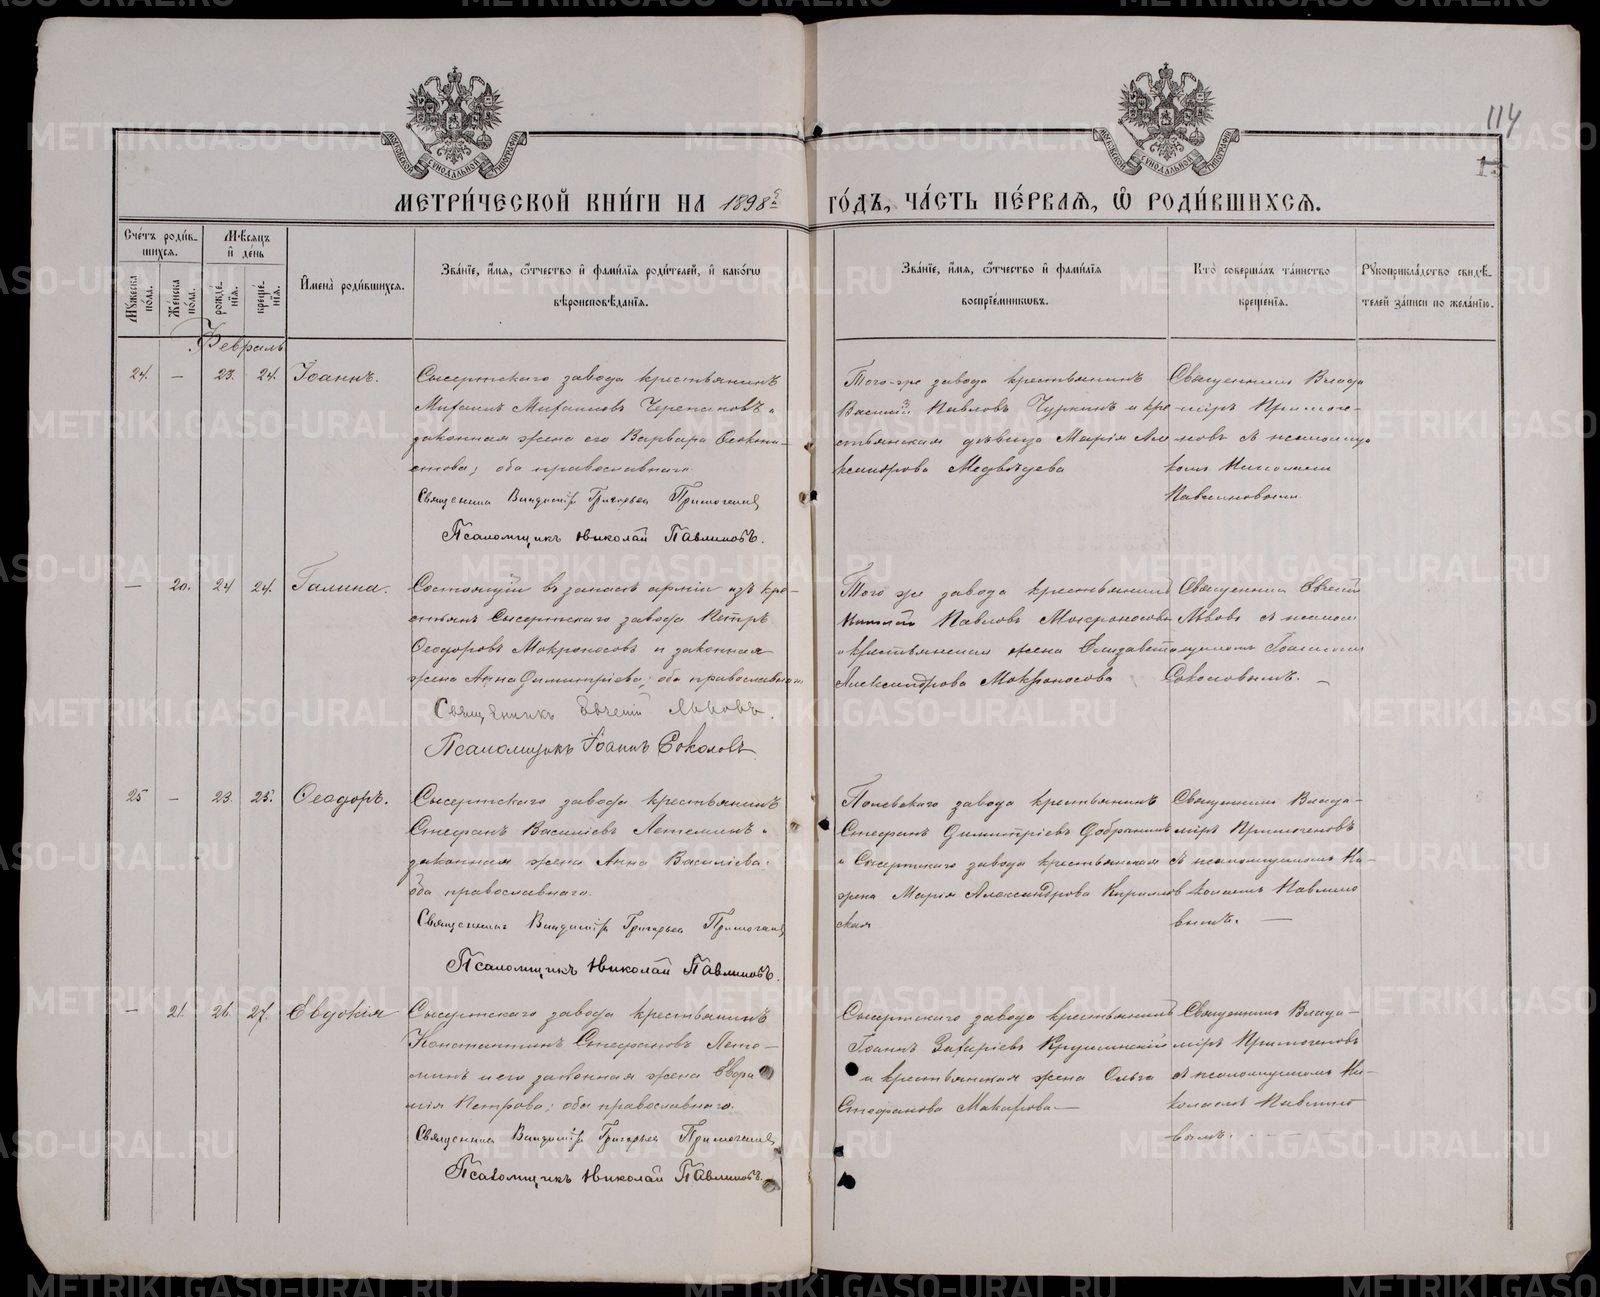 114
МОСКОВСКОЙ СѴНОДАЛЬНОЙ ТИПОГРАФІИ
МОСКОВСКОЙ СѴНОДАЛЬНОЙ ТИПОГРАФІИ
МЕТРИ́ЧЕСКОЙ КНИ́ГИ НА 1898 й
ГО́ДЪ, ЧА́СТЬ ПЕ́РВАѦ, Ѡ҆ РОДИ́ВШИХСѦ.
Сче́тъ роди́в-
шихсѧ.
Мꙋ́жеска по́ла.
Же́нска по́ла.
Мѣ́сѧцъ
и҆ де́нь
рожде́нїѧ.
креще́нїѧ.
И҆мена̀ роди́вшихсѧ.
Зва́нїе, и҆́мѧ, ѻ҆́тчество и҆ фами́лїѧ роди́телей, и҆ како́гѡ
вѣроисповѣ́данїѧ.
Зва́нїе, и҆́мѧ, ѻ҆́тчество и҆ фами́лїѧ
воспрїе́мникѡвъ.
Кто̀ соверша́лъ та́инство
креще́нїѧ.
Рꙋкоприкла́дство свидѣ́-
телей за́писи по жела́нїю.
Февраль
24. — 23. 24. Іоаннъ.
Сысертскаго завода крестьянинъ
Михаилъ Михаиловъ Черепановъ и
законная жена его Варвара Фокти-
стова; оба православнаго.
Священникъ Владиміръ Григорьевъ Примогеновъ
Псаломщикъ Николай Павлиновъ.
Того-же завода крестьянинъ
Василій Павловъ Чуркинъ и кре
стьянская дѣвица Марія Але
ксандрова Медвѣдева
Священникъ Влади
міръ Примоге-
новъ съ псаломщи
комъ Николаемъ
Павлиновымъ.
— 20. 24 24. Галина.
Состоящій въ запасѣ арміи изъ кре-
стьянъ Сысертскаго завода Петръ
Ѳеодоровъ Мокроносовъ и законная
жена Анна Димитріева; оба православнаго
Священникъ Евгеній Львовъ.
Псаломщикъ Іоаннъ Соколовъ
Того же завода крестьянинъ
Павловъ Мокроносовъ
и крестьянская жена Елизавета
Александрова Мокроносова
Священникъ Евгеній
Львовъ съ псалом
щикомъ Іоанномъ
Соколовымъ. —
25 — 23. 25. Ѳеодоръ.
Сысертскаго завода крестьянинъ
Стефанъ Василіевъ Летеминъ и
законная жена Анна Василіева;
оба православнаго.
Священникъ Владиміръ Григорьевъ Примогеновъ
Псаломщикъ Николай Павлиновъ.
Полевскаго завода крестьянинъ
Стефанъ Димитріевъ Добрынинъ
и Сысертскаго завода крестьянская
жена Марія Александрова Кирилов
ская
Священникъ Влади-
міръ Примогеновъ
съ псаломщикомъ Ни-
колаемъ Павлино
вымъ. —
— 21. 26. 27. Евдокія
Сысертскаго завода крестьянинъ
Константинъ Стефановъ Лете-
минъ и его законная жена Евфи
мія Петрова; оба православнаго.
Священникъ Владиміръ Григорьевъ Примогеновъ
Псаломщикъ Николай Павлиновъ.
Сысертскаго завода крестьянинъ
Іоаннъ Захаріевъ Крушинскій
и крестьянская жена Ольга
Стефанова Макарова —
Священникъ Влади-
міръ Примогеновъ
съ псаломщикомъ Ни-
колаемъ Павлино
вымъ. —
METRIKI.GASO-URAL.RU